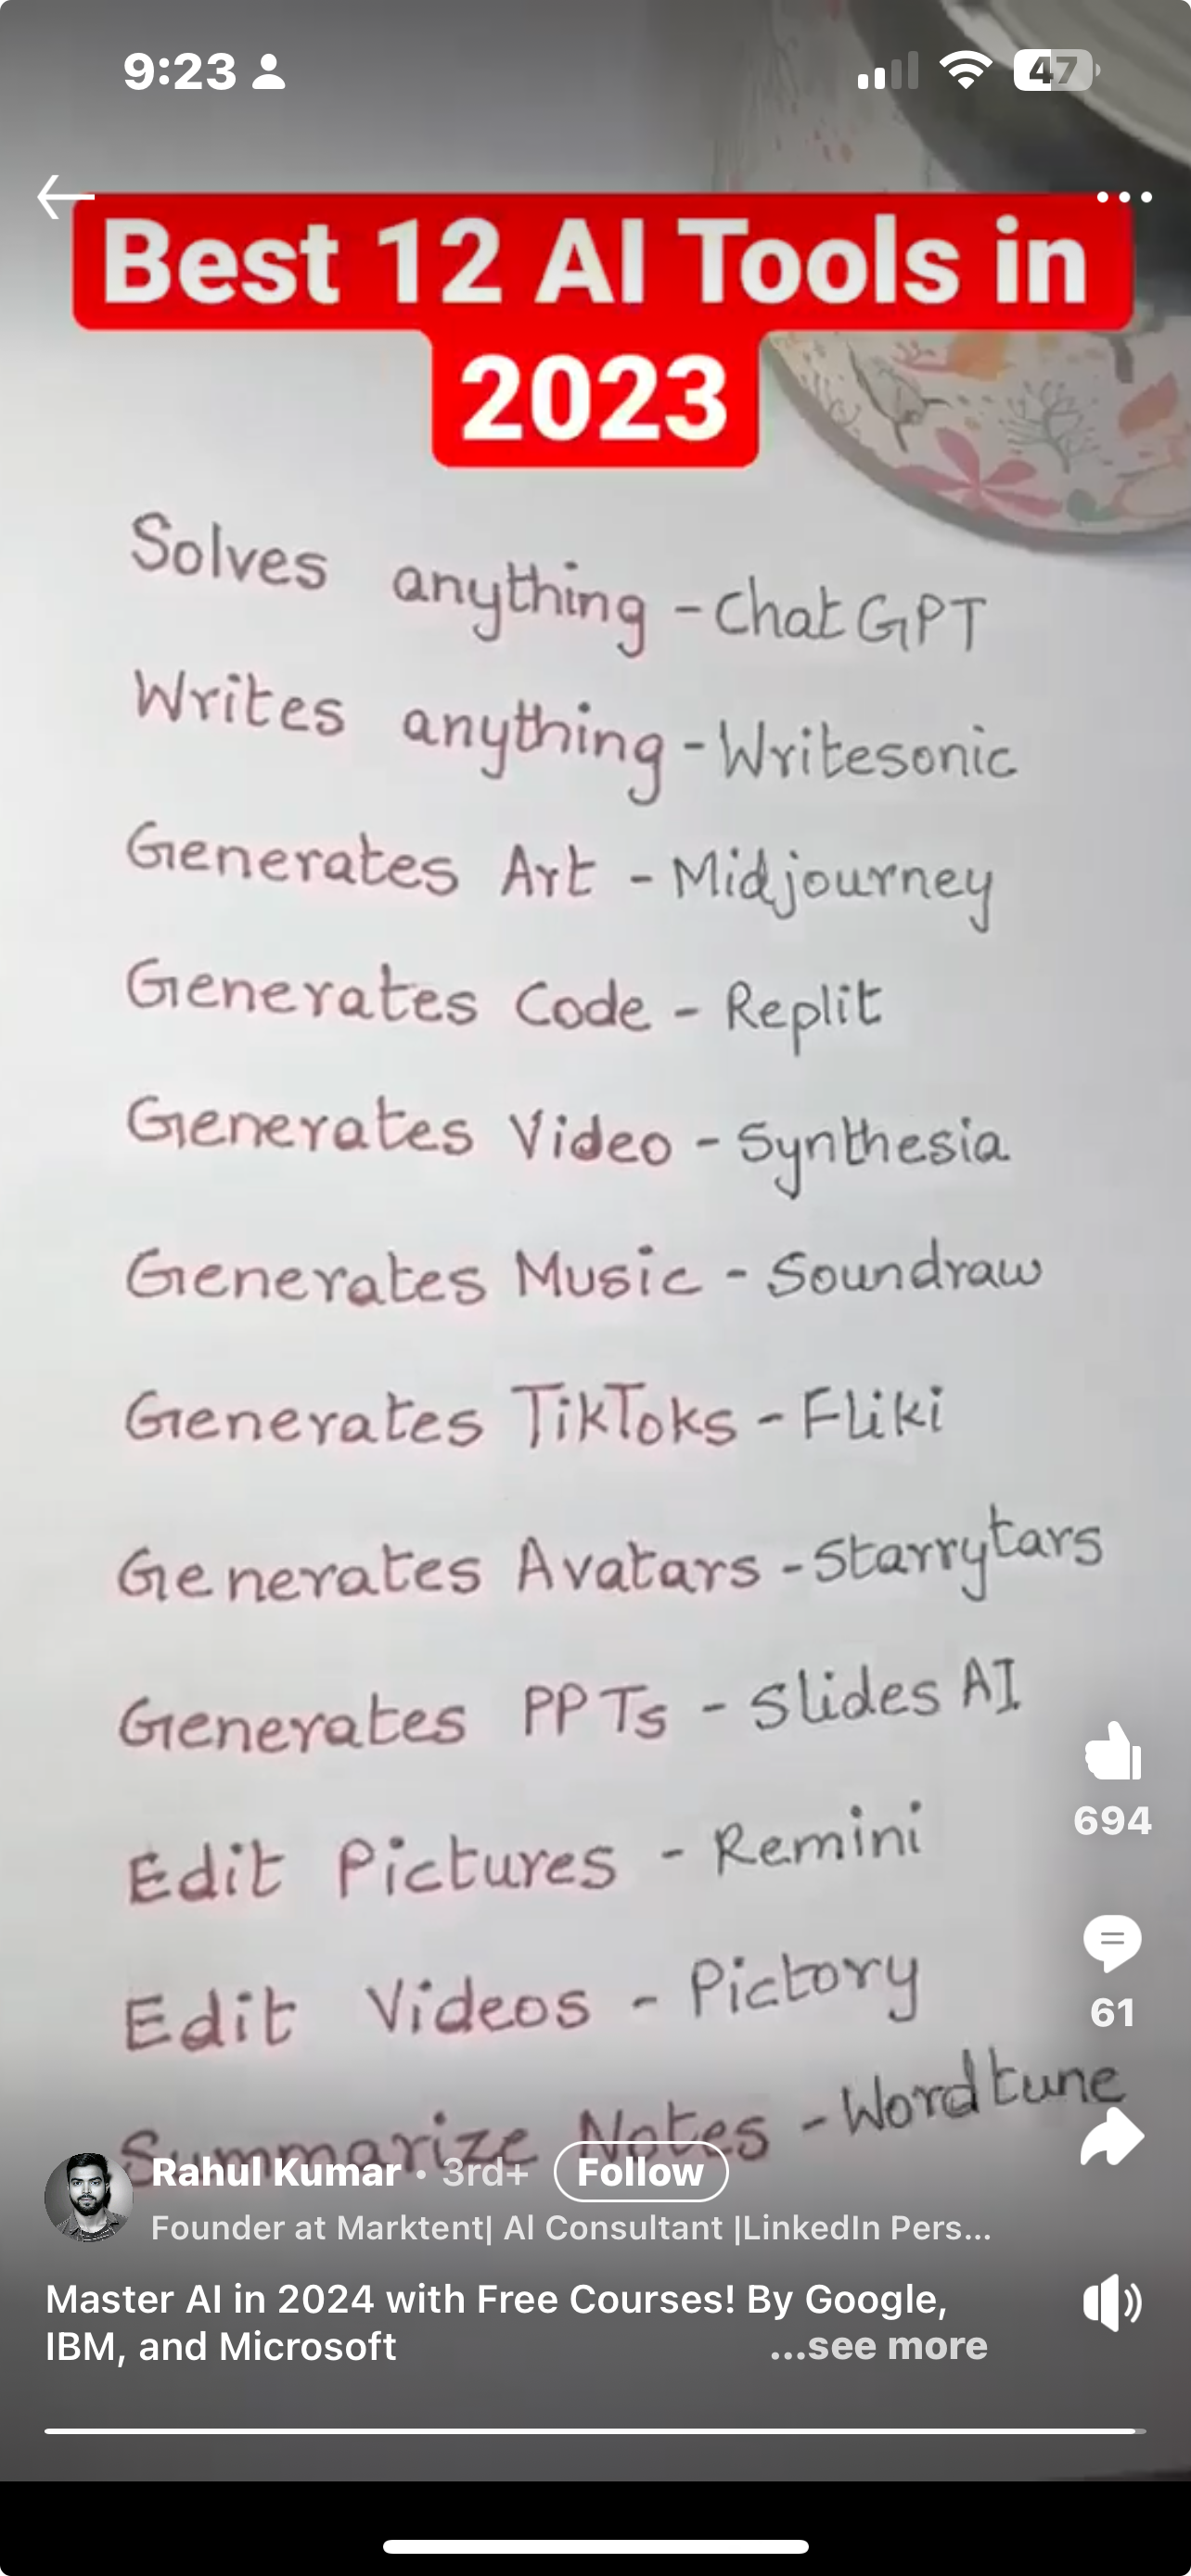 9:23
47
Best 12 AI Tools in
2023
Solves anything - ChatGPT
Writes anything - Writesonic
Generates Art - Midjourney
Generates Code - Replit
Generates Video - Synthesia
Generates Music - Soundraw
Generates TikToks - Fliki
Generates Avatars - Starrytars
Generates PPTs - Slides AI
Edit Pictures - Remini
Edit Videos - Pictory
Summarize Notes - Wordtune
694
61
Rahul Kumar • 3rd+ Follow
Founder at Marktent| Al Consultant |LinkedIn Pers...
Master AI in 2024 with Free Courses! By Google,
IBM, and Microsoft ...see more